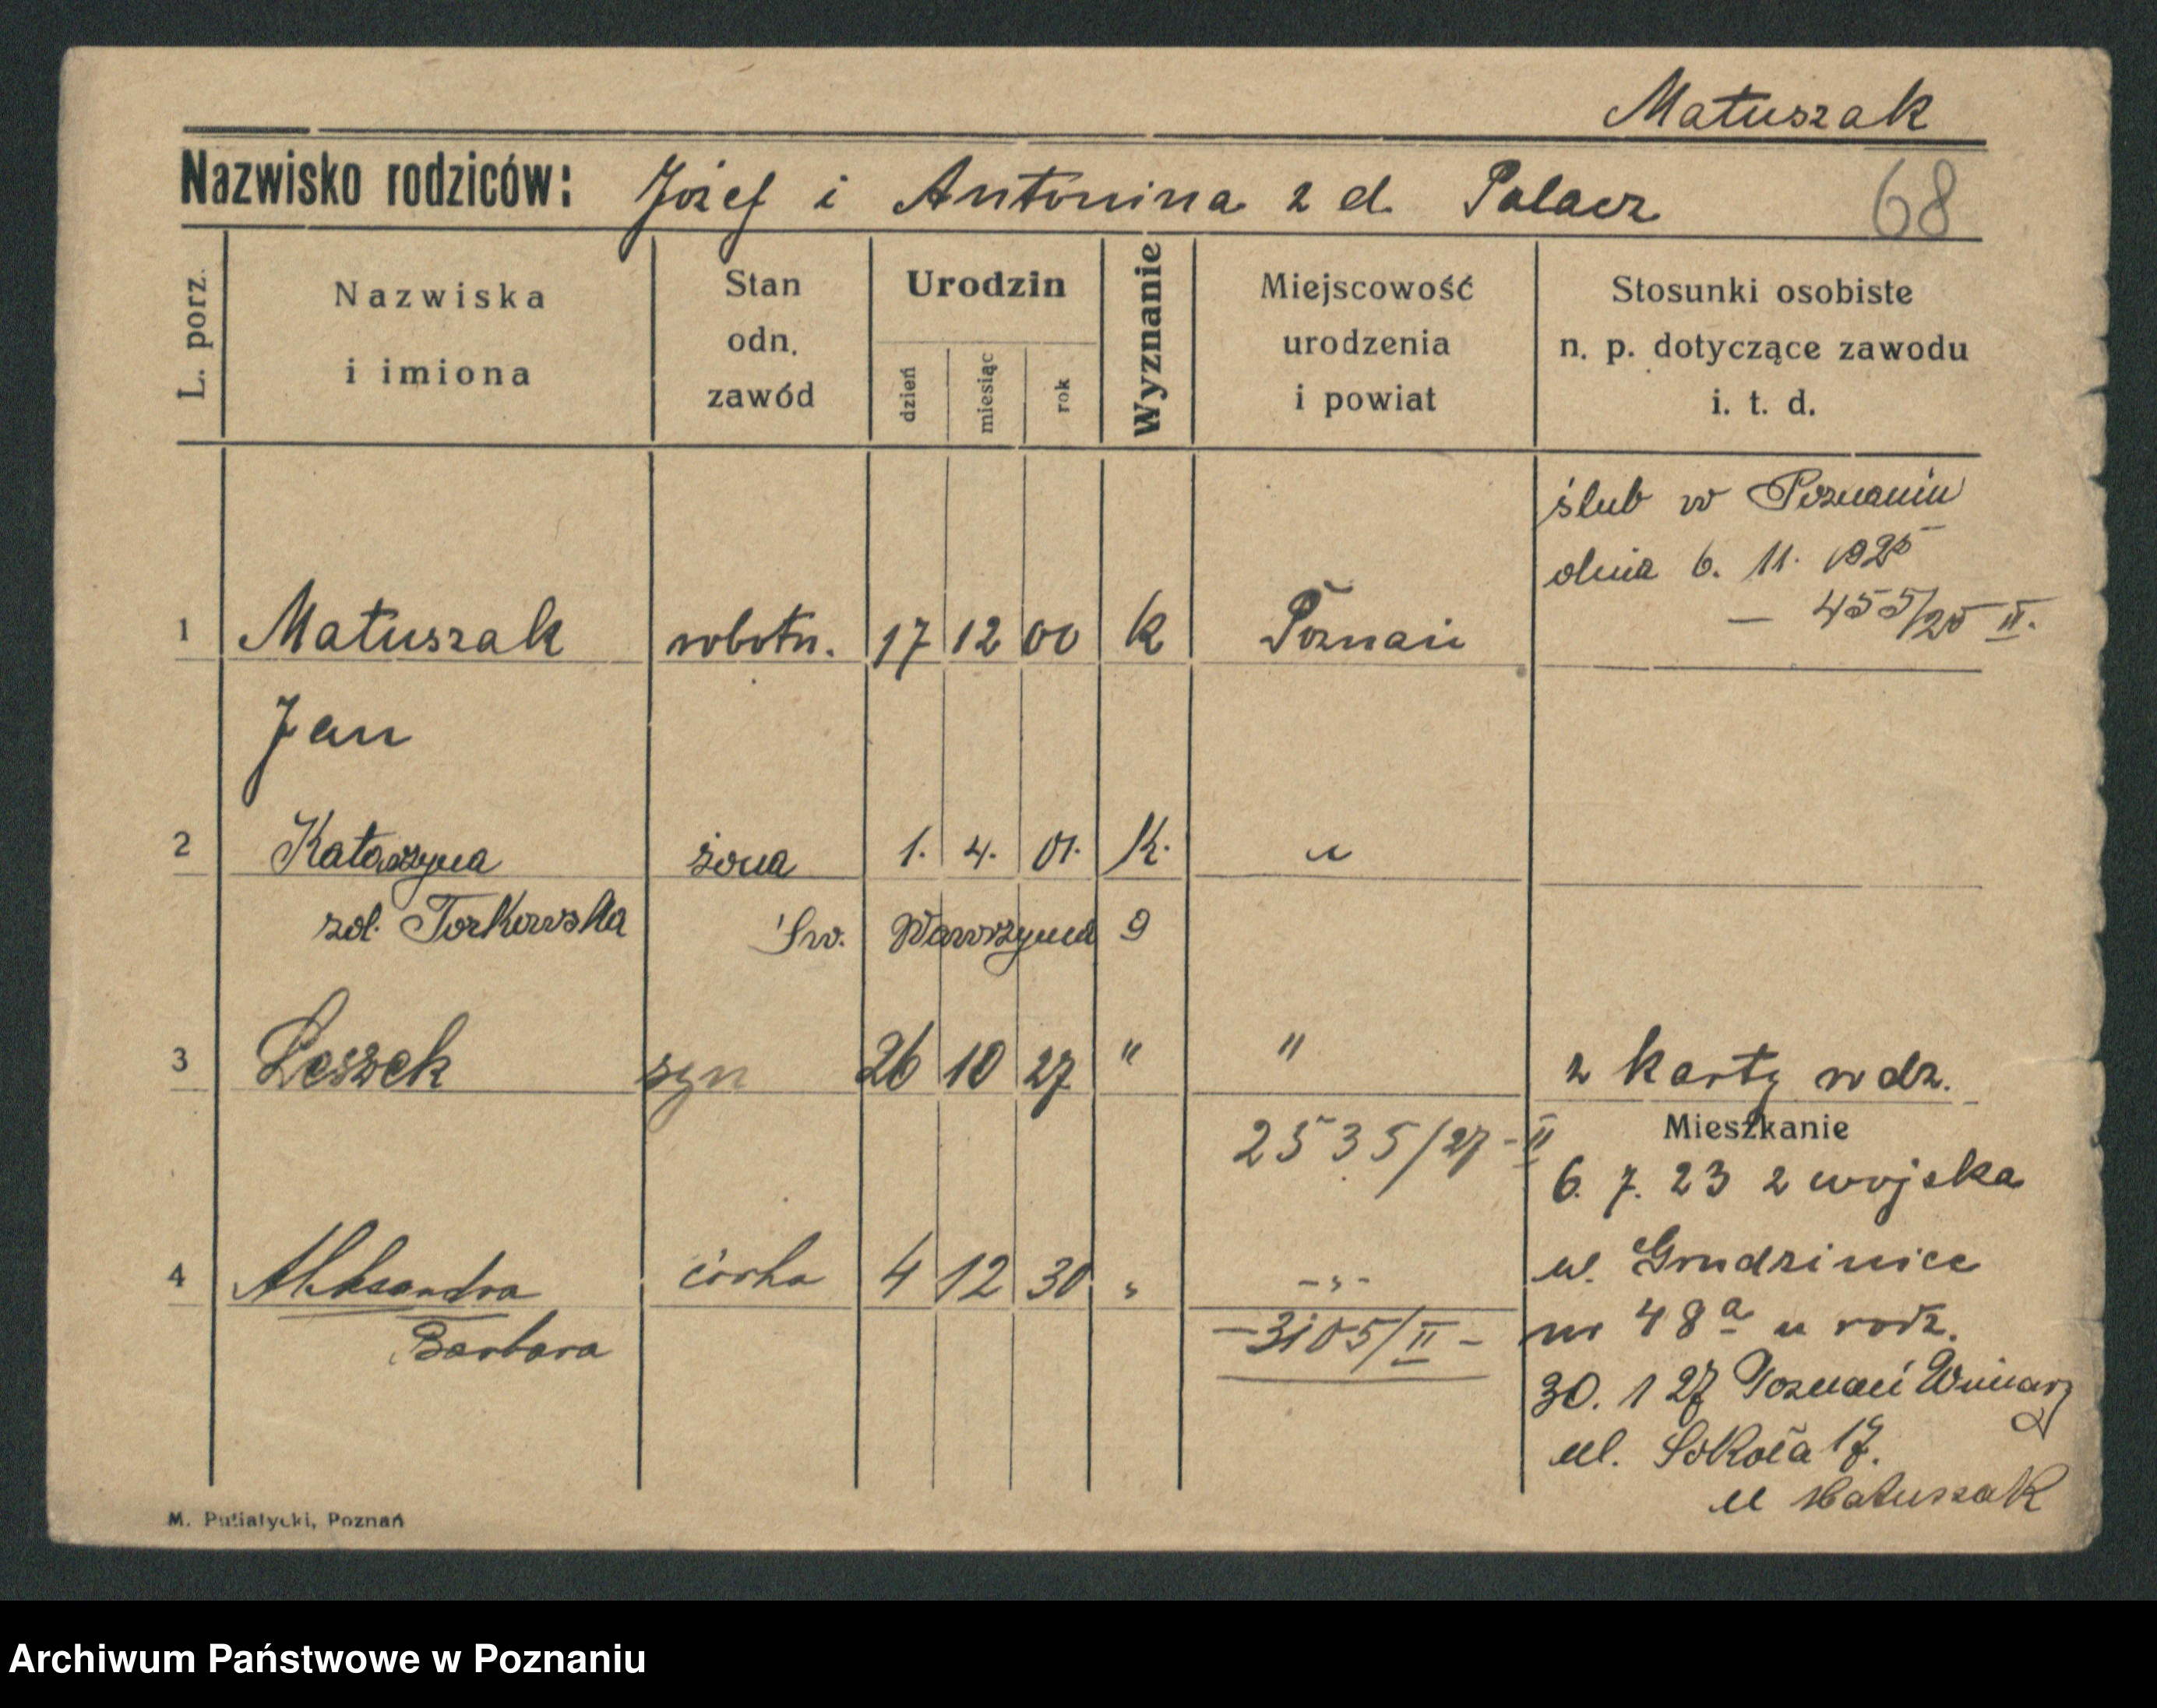 Matuszak
Nazwisko rodziców: Józef i Antonina z d. Palacz
68
L. porz.
Nazwiska i imiona
Stan odn. zawód
Urodzin
dzień
miesiąc
rok
Wyznanie
Miejscowość urodzenia i powiat
Stosunki osobiste n. p. dotyczące zawodu i. t. d.
ślub w Poznaniu
dnia 6. 11. 1925
— 455/25 II.
1 Matuszak robotn. 17 12 00 K Poznań
Jan
2 Katarzyna żona 1. 4. 01. K. "
zd. Torkowska Św. Wawrzyńca 9
3 Leszek syn 26 10 27 " " z karty rodz.
2535/27 - II
Mieszkanie
6. 7. 23 z wojska
w. Grudziniec
nr 48a u rodz.
4 Aleksandra córka 4 12 30 " -"-
Barbara
-3105/II-
30. 1 27 Poznań Winiary
ul. Sokoła 17.
u Matuszak
M. Putiatycki, Poznań
Archiwum Państwowe w Poznaniu